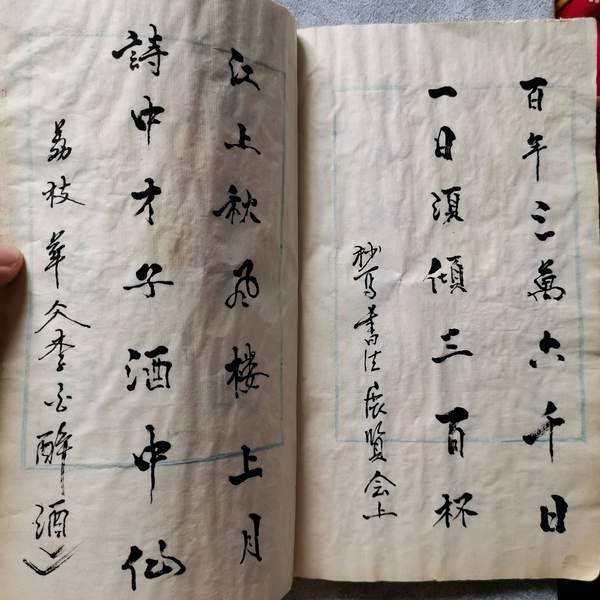 百年三萬六千日
一日須傾三百杯
抄写書法展覧会上
江上秋风楼上月
詩中才子酒中仙
荔枝華 李白醉酒